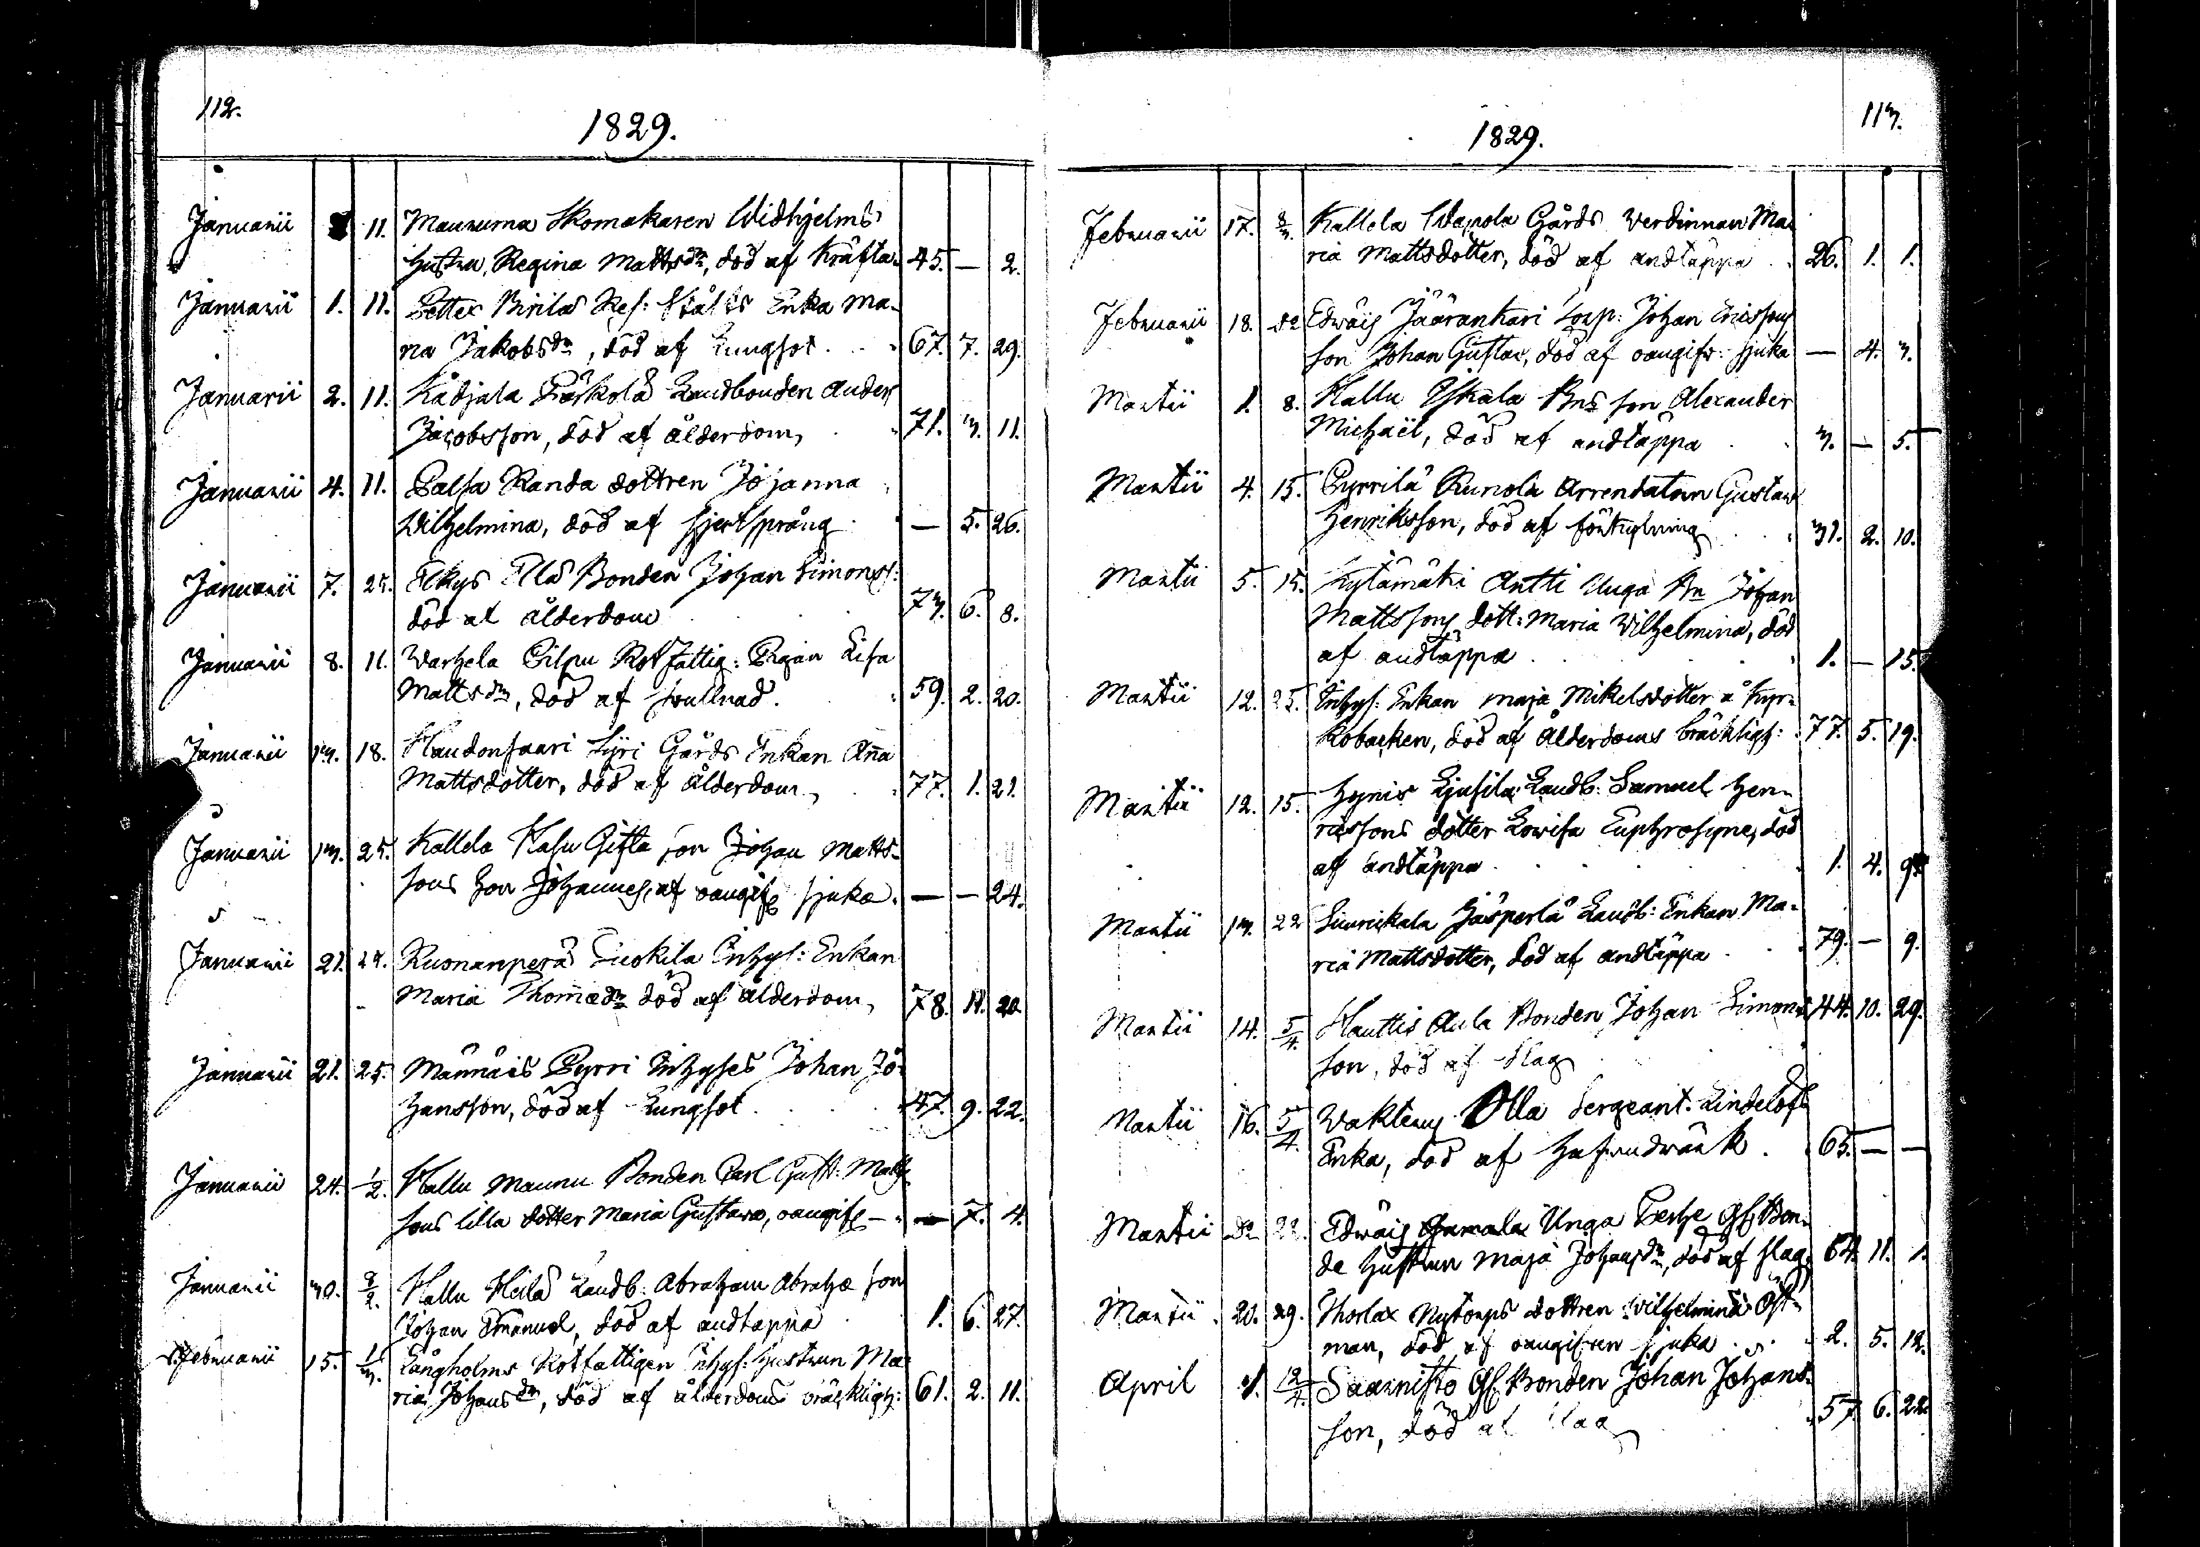 112.
1829.
Januarii 11. Maunuma Skomakaren Widhjelms
Hustru, Regina Mattsdr, död af Kräfta. 45. — 2.
Januarii 1. 11. Petter Pirilas Ref: Enka Ma-
ria Jakobsdr, död af Lungsot. 67. 7. 29.
Januarii 2. 11. Kädjala Landbonden Anders
Jacobsson, död af ålderdom, 71. 3. 11.
Januarii 4. 11. Palsa Randa dottren Johanna
Wilhelmina, död af hjertsprång — 5. 26.
Januarii 7. 25. Elkys Ella Bonden Johan Simonss:
död af ålderdom 73. 6. 8.
Januarii 8. 11. Warhela Pilpu Rotfattig: Pigan Lisa
Mattsdr, död af swullnad. 59. 2. 20.
Januarii 13. 18. Haudonsaari Syri Gårds Enkan Anna
Mattsdotter, död af ålderdom, 77. 1. 21.
Januarii 13. 25. Kallela Kasu Gifta son Johan Matts-
sons son Johannes, af oangif sjuka. — — 24.
Januarii 21. Kuonanperä Inhys: Enkan
Maria Thomædr död af ålderdom, 78. 11. 20.
Januarii 21. 25. Männäis Pyrri Inhyses Johan Jo-
hansson, död af Lungsot 47. 9. 22.
Januarii 24. 1/2. Hallu Maunu Bonden Carl Gust: Matts-
sons lilla dotter Maria Gustava, oangif — — 7. 4.
Januarii 30. 8/2. Hallu Heila Landb: Abraham Abrahæ son
Johan Emanuel, död af andtäppa 1. 6. 27.
Februarii 15. 1/3. Långholms Rotfattigen Inhys: hustrun Ma-
ria Johansdr, död af ålderdoms bräckligh: 61. 2. 11.
113.
1829.
Februarii 17. 8/3. Kallela Wapola Gårds Werdinnan Ma-
ria Mattsdotter, död af andtäppa 26. 1. 1.
Februarii 18. do Edwäis Jääränkari Torp: Johan Ericssons
son Johan Gustav, död af oangifv: sjuka — 4. 3.
Martii 1. 8. Hallu Yskala Bns son Alexander
Michaël, död af andtäppa 3. — 5.
Martii 4. 15. Pyrrilä Runola Arrendatorn Gustav
Henriksson, död af 31. 2. 10.
Martii 5. 15. Kylämäki Antti Unga Bn Johan
Mattssons dott: Maria Wilhelmina, död
af andtäppa 1. — 15.
Martii 12. 25. Inhys: Enkan Maja Mikelsdotter å Kyr-
kobacken, död af Ålderdoms bräckligh: 77. 5. 19.
Martii 12. 15. Hynis Landb: Samuel Hen-
ricssons dotter Lovisa Euphrosyne, död
af andtäppa 1. 4. 9.
Martii 13. 22 Sinrickala Jasperlä Landb: Enkan Ma-
ria Mattsdotter, död af andtäppa 79. — 9.
Martii 14. 5/4. Hauttis Aula Bonden Johan Simons- 44. 10. 29.
son, död af slag
Martii 16. 5/4. Olla Sergeant. Lindelöfs
Enka, död af hufwudwärk. 65. — —
Martii do 22. Edwäis Unga Gl Bon-
de hustrun Maja Johansdr, död af slag. 64. 11. 1.
Martii 20. 29. Thorlax Nytorps dottren Wilhelmina Öst-
man, död af oangifven sjuka. 2. 5. 12.
April 1. 12/4. Saarnisto Gl Bonden Johan Johans-
son, död af slag 57. 6. 22.